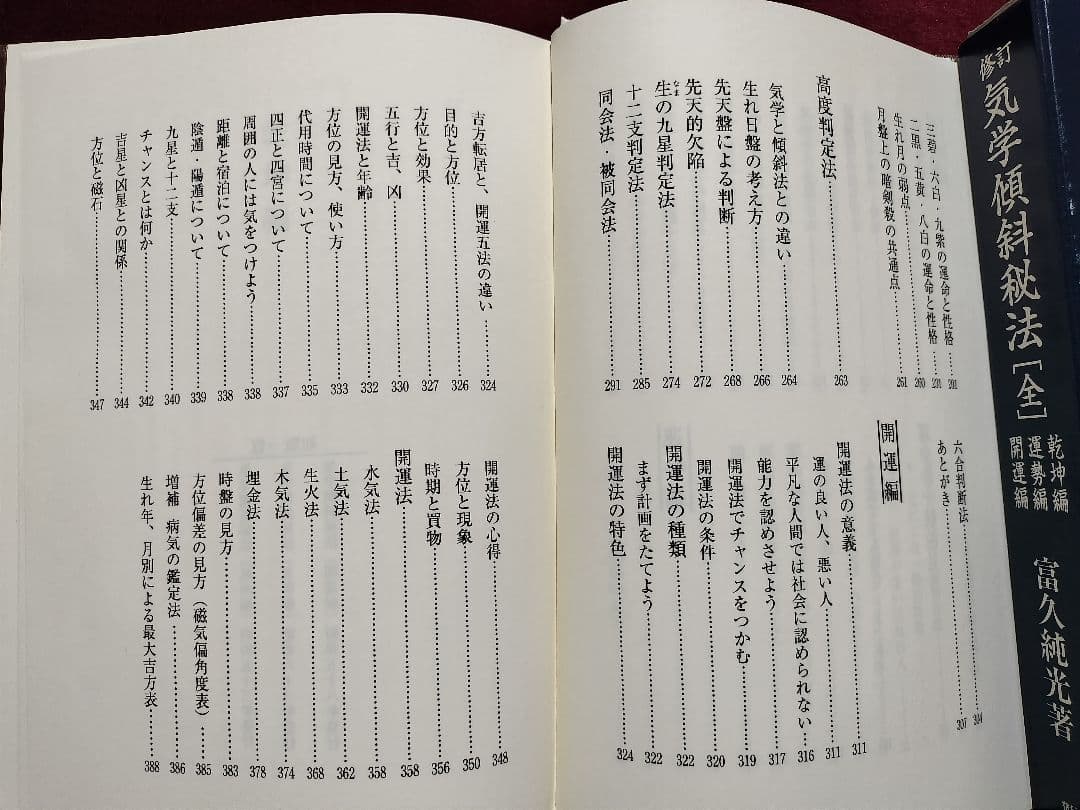 三碧・六白・九紫の運命と性格
二黒・五黄・八白の運命と性格
生れ月の弱点……260
月盤上の暗剣殺の共通点……261
高度判定法……263
気学と傾斜法との違い……264
生れ日盤の考え方……266
先天盤による判断……268
先天的欠陥……272
生の九星判定法……274
なま
十二支判定法……285
同会法・被同会法……291
六合判断法……304
あとがき……307
開運編
開運法の意義……311
運の良い人、悪い人……311
平凡な人間では社会に認められない……316
能力を認めさせよう……317
開運法でチャンスをつかむ……319
開運法の条件……320
開運法の種類……322
まず計画をたてよう……322
開運法の特色……324
吉方転居と、開運五法の違い……324
目的と方位……326
方位と効果……327
五行と吉、凶……330
開運法と年齢……332
方位の見方、使い方……333
代用時間について……335
四正と四宮について……337
周囲の人には気をつけよう……338
距離と宿泊について……338
陰遁・陽遁について……339
九星と十二支……340
チャンスとは何か……342
吉星と凶星との関係……344
方位と磁石……347
開運法の心得……348
方位と現象……350
時期と買物……356
開運法……358
水気法……358
土気法……362
生火法……368
木気法……374
埋金法……378
時盤の見方……383
方位偏差の見方（磁気偏角度表）……385
増補　病気の鑑定法……386
生れ年、月別による最大吉方表……388
修訂
気学傾斜秘法［全］
乾坤編
運勢編
開運編
富久純光著